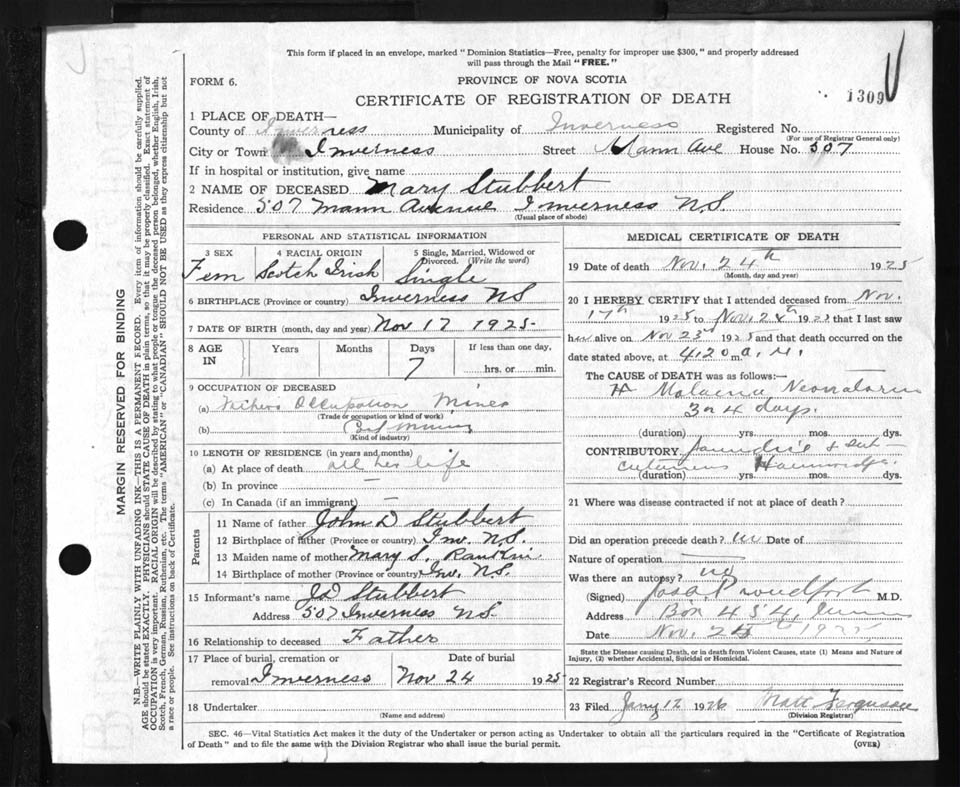 This form if placed in an envelope, marked "Dominion Statistics—Free, penalty for improper use $300," and properly addressed
will pass through the Mail "FREE."
FORM 6.
PROVINCE OF NOVA SCOTIA
1309
CERTIFICATE OF REGISTRATION OF DEATH
1 PLACE OF DEATH—
County of Inverness Municipality of Inverness Registered No.
(For use of Registrar General only)
City or Town Inverness Street Mann Ave House No. 507
If in hospital or institution, give name
2 NAME OF DECEASED Mary Stubbert
Residence 507 Mann Avenue Inverness N.S.
(Usual place of abode)
PERSONAL AND STATISTICAL INFORMATION
3 SEX 4 RACIAL ORIGIN 5 Single, Married, Widowed or
Divorced. (Write the word)
Fem Scotch Irish Single
6 BIRTHPLACE (Province or country) Inverness NS
7 DATE OF BIRTH (month, day and year) Nov 17 1925
8 AGE IN Years Months Days If less than one day,
7 hrs. or min.
9 OCCUPATION OF DECEASED
(a) Fathers Occupation Miner
(Trade or occupation or kind of work)
(b) Coal Mining
(Kind of industry)
10 LENGTH OF RESIDENCE (in years and months)
(a) At place of death all her life
(b) In province —
(c) In Canada (if an immigrant) —
Parents
11 Name of father John D Stubbert
12 Birthplace of father (Province or country) Inv. N.S.
13 Maiden name of mother Mary S. Rankin
14 Birthplace of mother (Province or country) Inv. N.S.
15 Informant's name JD Stubbert
Address 507 Inverness NS.
16 Relationship to deceased Father
17 Place of burial, cremation or Date of burial
removal Inverness Nov 24 1925
18 Undertaker
(Name and address)
MEDICAL CERTIFICATE OF DEATH
19 Date of death Nov. 24th 1925
(Month, day and year)
20 I HEREBY CERTIFY that I attended deceased from Nov.
17th 1925 to Nov. 24th 1925 that I last saw
h alive on Nov 23rd 1925 and that death occurred on the
date stated above, at 4.20 m. A. M.
The CAUSE of DEATH was as follows:—
Malaena Neonatorum
3 or 4 days.
(duration) yrs. mos. dys.
CONTRIBUTORY Jaundice & sub
cutaneous
(duration) yrs. mos. dys.
21 Where was disease contracted if not at place of death?
Did an operation precede death? no Date of
Nature of operation
Was there an autopsy? no
(Signed) Proudfoot M.D.
Address Box 454
Date Nov. 1925
State the Disease causing Death, or in death from Violent Causes, state (1) Means and Nature of
Injury, (2) whether Accidental, Suicidal or Homicidal.
22 Registrar's Record Number
23 Filed Jany 12 1926 Matt Ferguson
(Division Registrar)
SEC. 46—Vital Statistics Act makes it the duty of the Undertaker or person acting as Undertaker to obtain all the particulars required in the "Certificate of Registration
of Death" and to file the same with the Division Registrar who shall issue the burial permit.
(OVER)
MARGIN RESERVED FOR BINDING
N.B.—WRITE PLAINLY WITH UNFADING INK—THIS IS A PERMANENT RECORD. Every item of information should be carefully supplied.
AGE should be stated EXACTLY. PHYSICIANS should STATE CAUSE OF DEATH in plain terms, so that it may be properly classified. Exact statement of
OCCUPATION is very important. RACIAL ORIGIN will be described by stating to what people or tongue the deceased person belonged, whether English, Irish,
Scotch, French, German, Russian, Ruthenian, etc. The terms "AMERICAN" or "CANADIAN" SHOULD NOT BE USED as they express citizenship but not
a race or people. See instructions on back of Certificate.